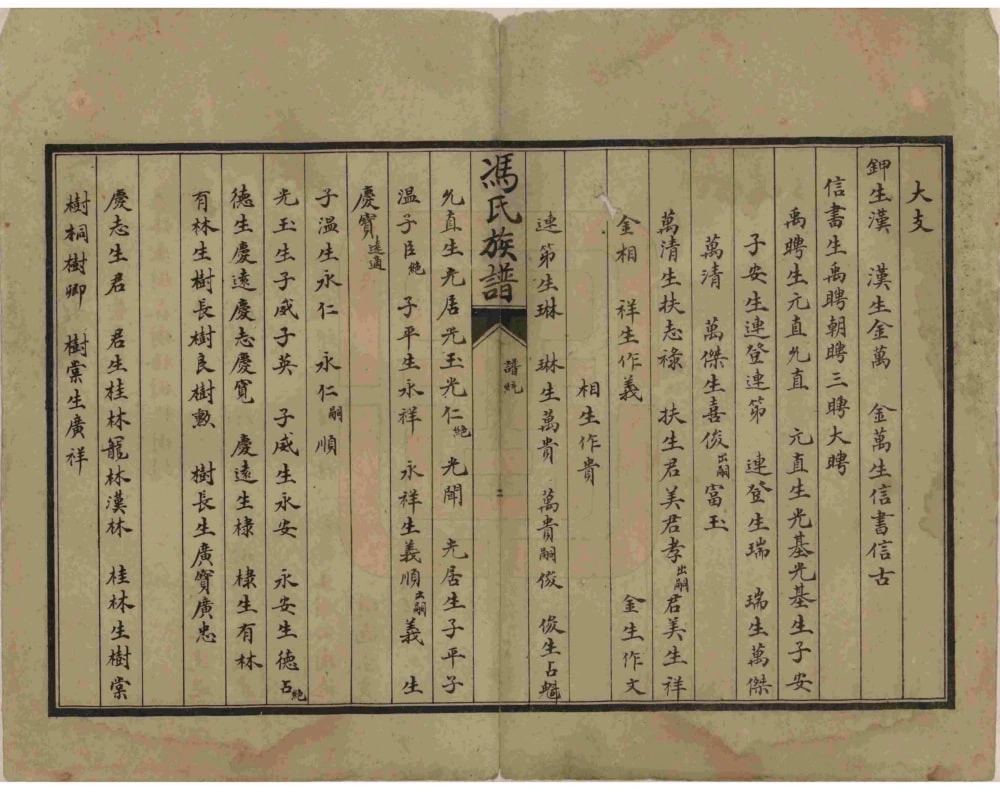 大支
鉀生漢　漢生金萬　金萬生信書信古
信書生禹聘朝聘三聘大聘
禹聘生元直允直　元直生光基光基生子安
子安生連登連第　連登生瑞　瑞生萬傑
萬清　萬傑生喜俊出嗣富玉
萬清生扶志祿　扶生君美君孝出嗣君美生祥
金相　祥生作義　金生作文
相生作貴
連第生琳　琳生萬貴　萬貴嗣俊　俊生占魁
馮氏族譜
譜統
二
允直生光居光玉光仁絶　光聞　光居生子平子
溫子臣絶　子平生永祥　永祥生義順出嗣義　生
慶寶遠適
子溫生永仁　永仁嗣順
光玉生子威子英　子威生永安　永安生德占絶
德生慶遠慶志慶寬　慶遠生棣　棣生有林
有林生樹長樹良樹勲　樹長生廣寶廣忠
慶志生君　君生桂林龍林漢林　桂林生樹棠
樹桐樹卿　樹棠生廣祥